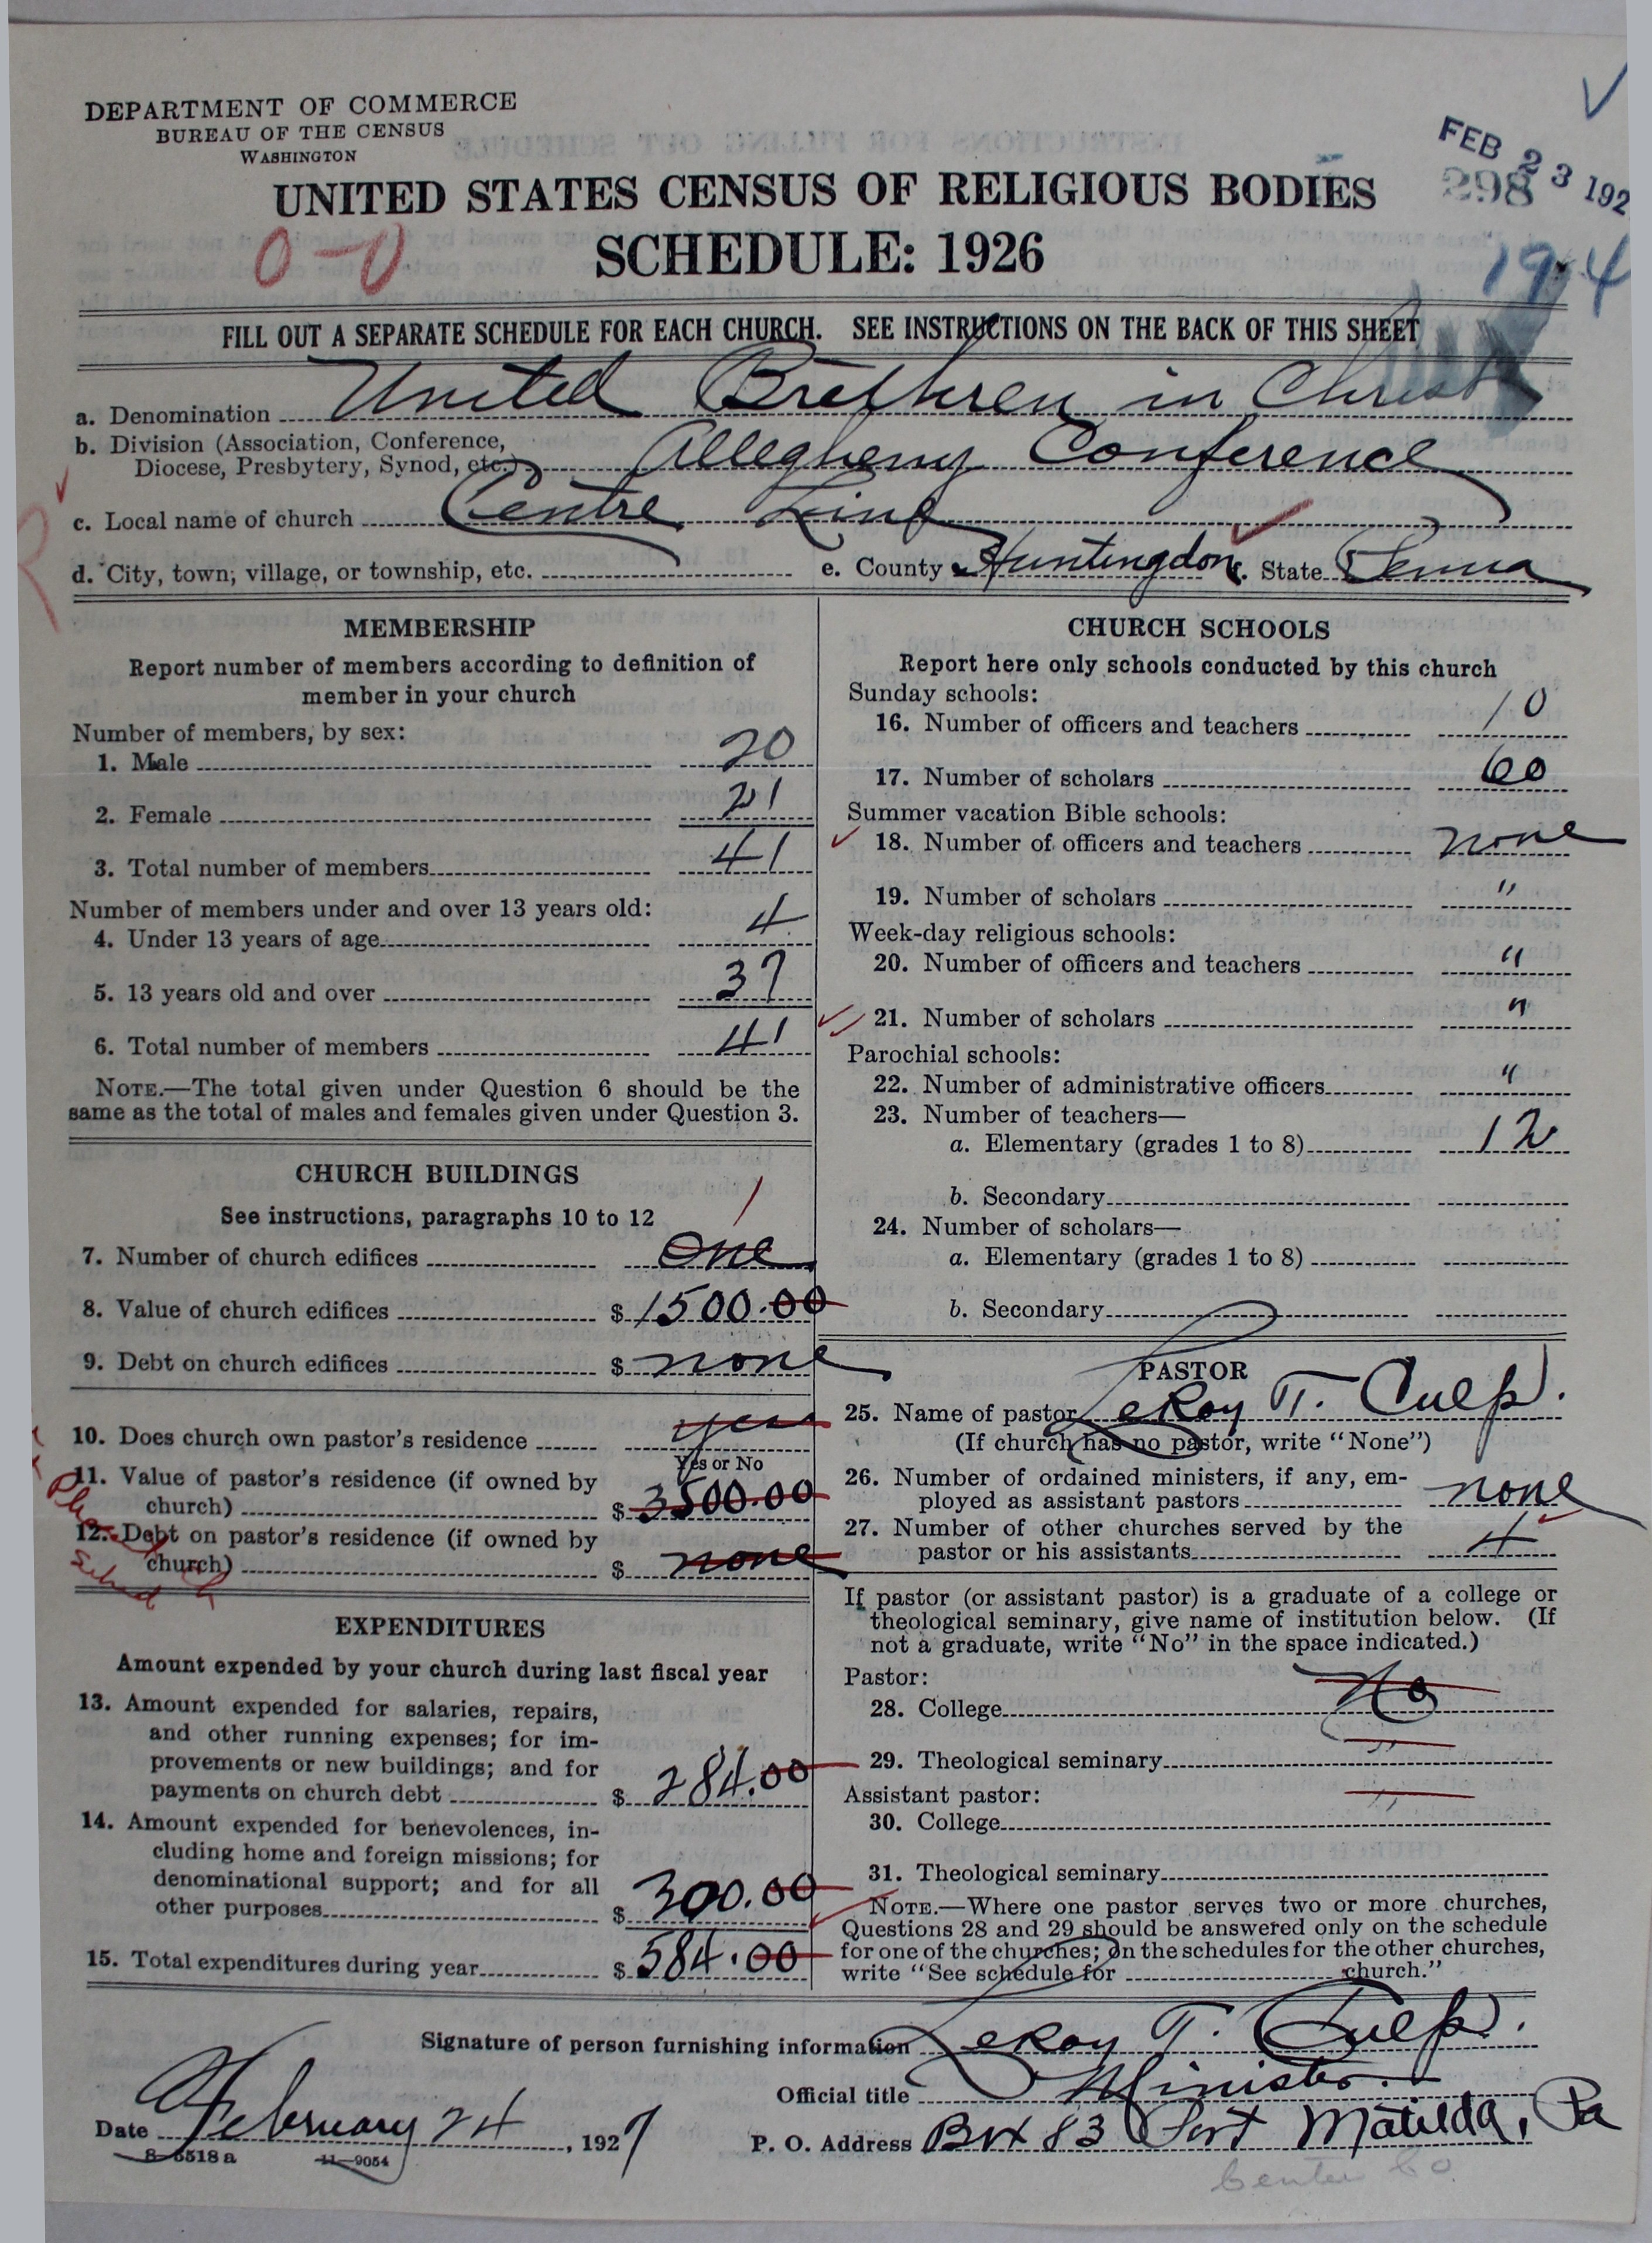 DEPARTMENT OF COMMERCE
BUREAU OF THE CENSUS
WASHINGTON
FEB 23 192
298
UNITED STATES CENSUS OF RELIGIOUS BODIES
SCHEDULE: 1926
0-0
194
FILL OUT A SEPARATE SCHEDULE FOR EACH CHURCH. SEE INSTRUCTIONS ON THE BACK OF THIS SHEET
a. Denomination United Brethren in Christ
b. Division (Association, Conference,
Diocese, Presbytery, Synod, etc.) Allegheny Conference
c. Local name of church Centre Line
d. City, town, village, or township, etc. e. County Huntingdon f. State Penna
MEMBERSHIP
Report number of members according to definition of
member in your church
Number of members, by sex:
1. Male 20
2. Female 21
3. Total number of members 41
Number of members under and over 13 years old:
4. Under 13 years of age 4
5. 13 years old and over 37
6. Total number of members 41
NOTE.—The total given under Question 6 should be the
same as the total of males and females given under Question 3.
CHURCH BUILDINGS
See instructions, paragraphs 10 to 12
1
7. Number of church edifices one
8. Value of church edifices $ 1500.00
9. Debt on church edifices $ none
10. Does church own pastor's residence yes
Yes or No
11. Value of pastor's residence (if owned by
church) $ 3500.00
12. Debt on pastor's residence (if owned by
church) $ none
EXPENDITURES
Amount expended by your church during last fiscal year
13. Amount expended for salaries, repairs,
and other running expenses; for im-
provements or new buildings; and for
payments on church debt $ 284.00
14. Amount expended for benevolences, in-
cluding home and foreign missions; for
denominational support; and for all
other purposes $ 300.00
15. Total expenditures during year $ 584.00
CHURCH SCHOOLS
Report here only schools conducted by this church
Sunday schools:
16. Number of officers and teachers 10
17. Number of scholars 60
Summer vacation Bible schools:
18. Number of officers and teachers none
19. Number of scholars "
Week-day religious schools:
20. Number of officers and teachers "
21. Number of scholars "
Parochial schools:
22. Number of administrative officers "
23. Number of teachers—
a. Elementary (grades 1 to 8) 12
b. Secondary
24. Number of scholars—
a. Elementary (grades 1 to 8)
b. Secondary
PASTOR
25. Name of pastor LeRoy T. Culp.
(If church has no pastor, write "None")
26. Number of ordained ministers, if any, em-
ployed as assistant pastors none
27. Number of other churches served by the
pastor or his assistants 4
If pastor (or assistant pastor) is a graduate of a college or
theological seminary, give name of institution below. (If
not a graduate, write "No" in the space indicated.)
Pastor:
28. College No
29. Theological seminary "
Assistant pastor:
30. College "
31. Theological seminary
NOTE.—Where one pastor serves two or more churches,
Questions 28 and 29 should be answered only on the schedule
for one of the churches; on the schedules for the other churches,
write "See schedule for church."
Signature of person furnishing information LeRoy T. Culp.
Official title Minister.
Date February 24, 1927
P. O. Address Box 83 Port Matilda, Pa
8-5518a 11-9054
Center Co.